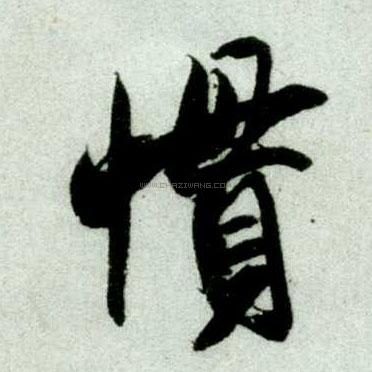 慣
WWW.CHAZIWANG.COM